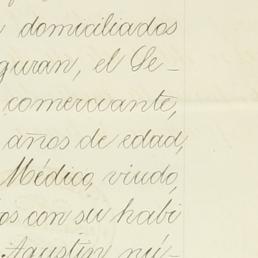 domiciliados
guran, el Se-
comerciante,
años de edad,
Médico, viudo,
os con su habi
Agustín nú-